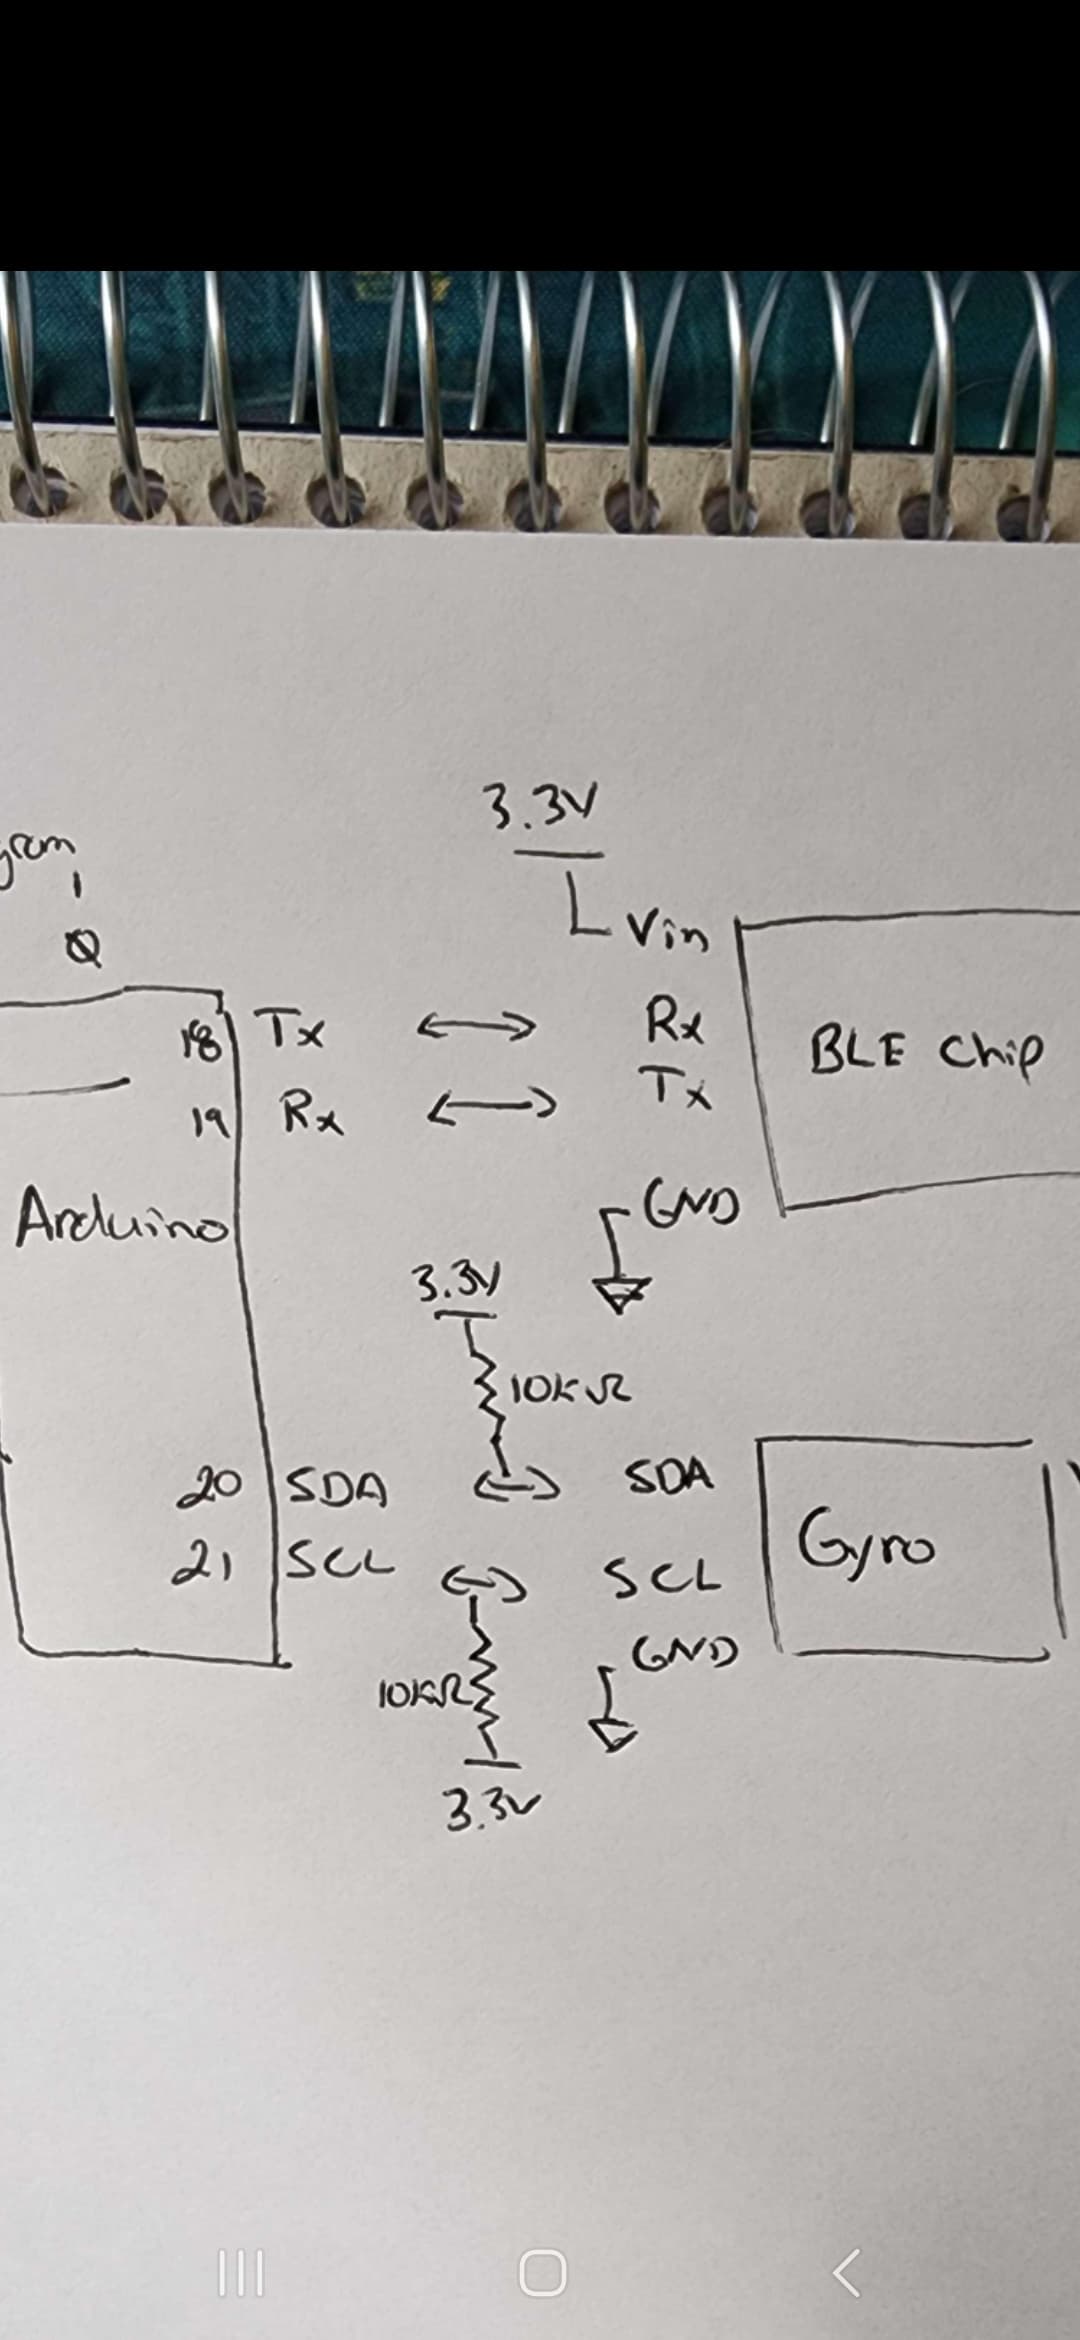 3.3V
Vin
18 Tx ↔ Rx
19 Rx ↔ Tx
BLE Chip
Arduino
GND
3.3V
10KΩ
20 SDA ↔ SDA
21 SCL ↔ SCL
Gyro
GND
10KΩ
3.3V